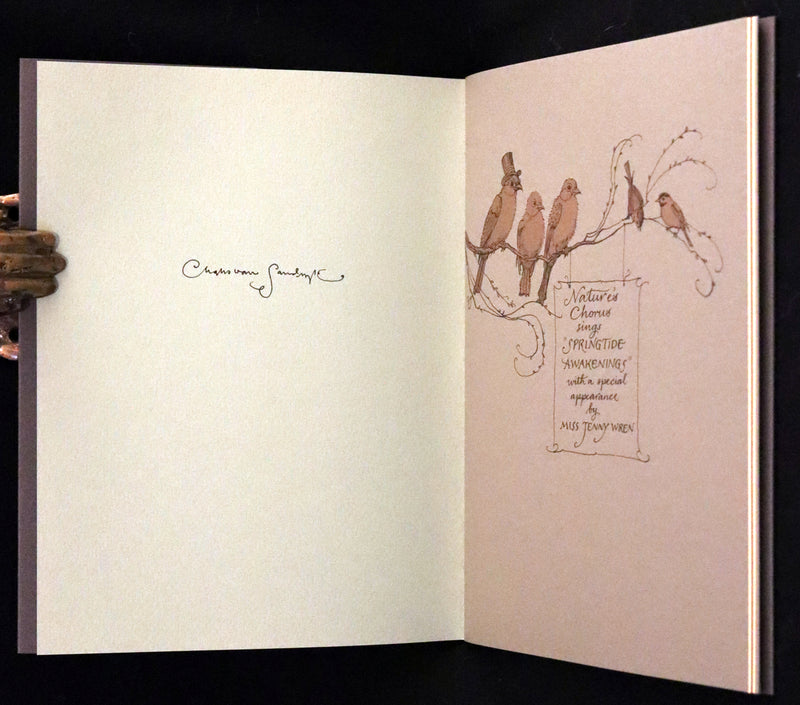 Charles van Sandwyk
Nature's
Chorus
sings
"SPRINGTIDE
AWAKENINGS"
with a special
appearance
by
MISS JENNY WREN